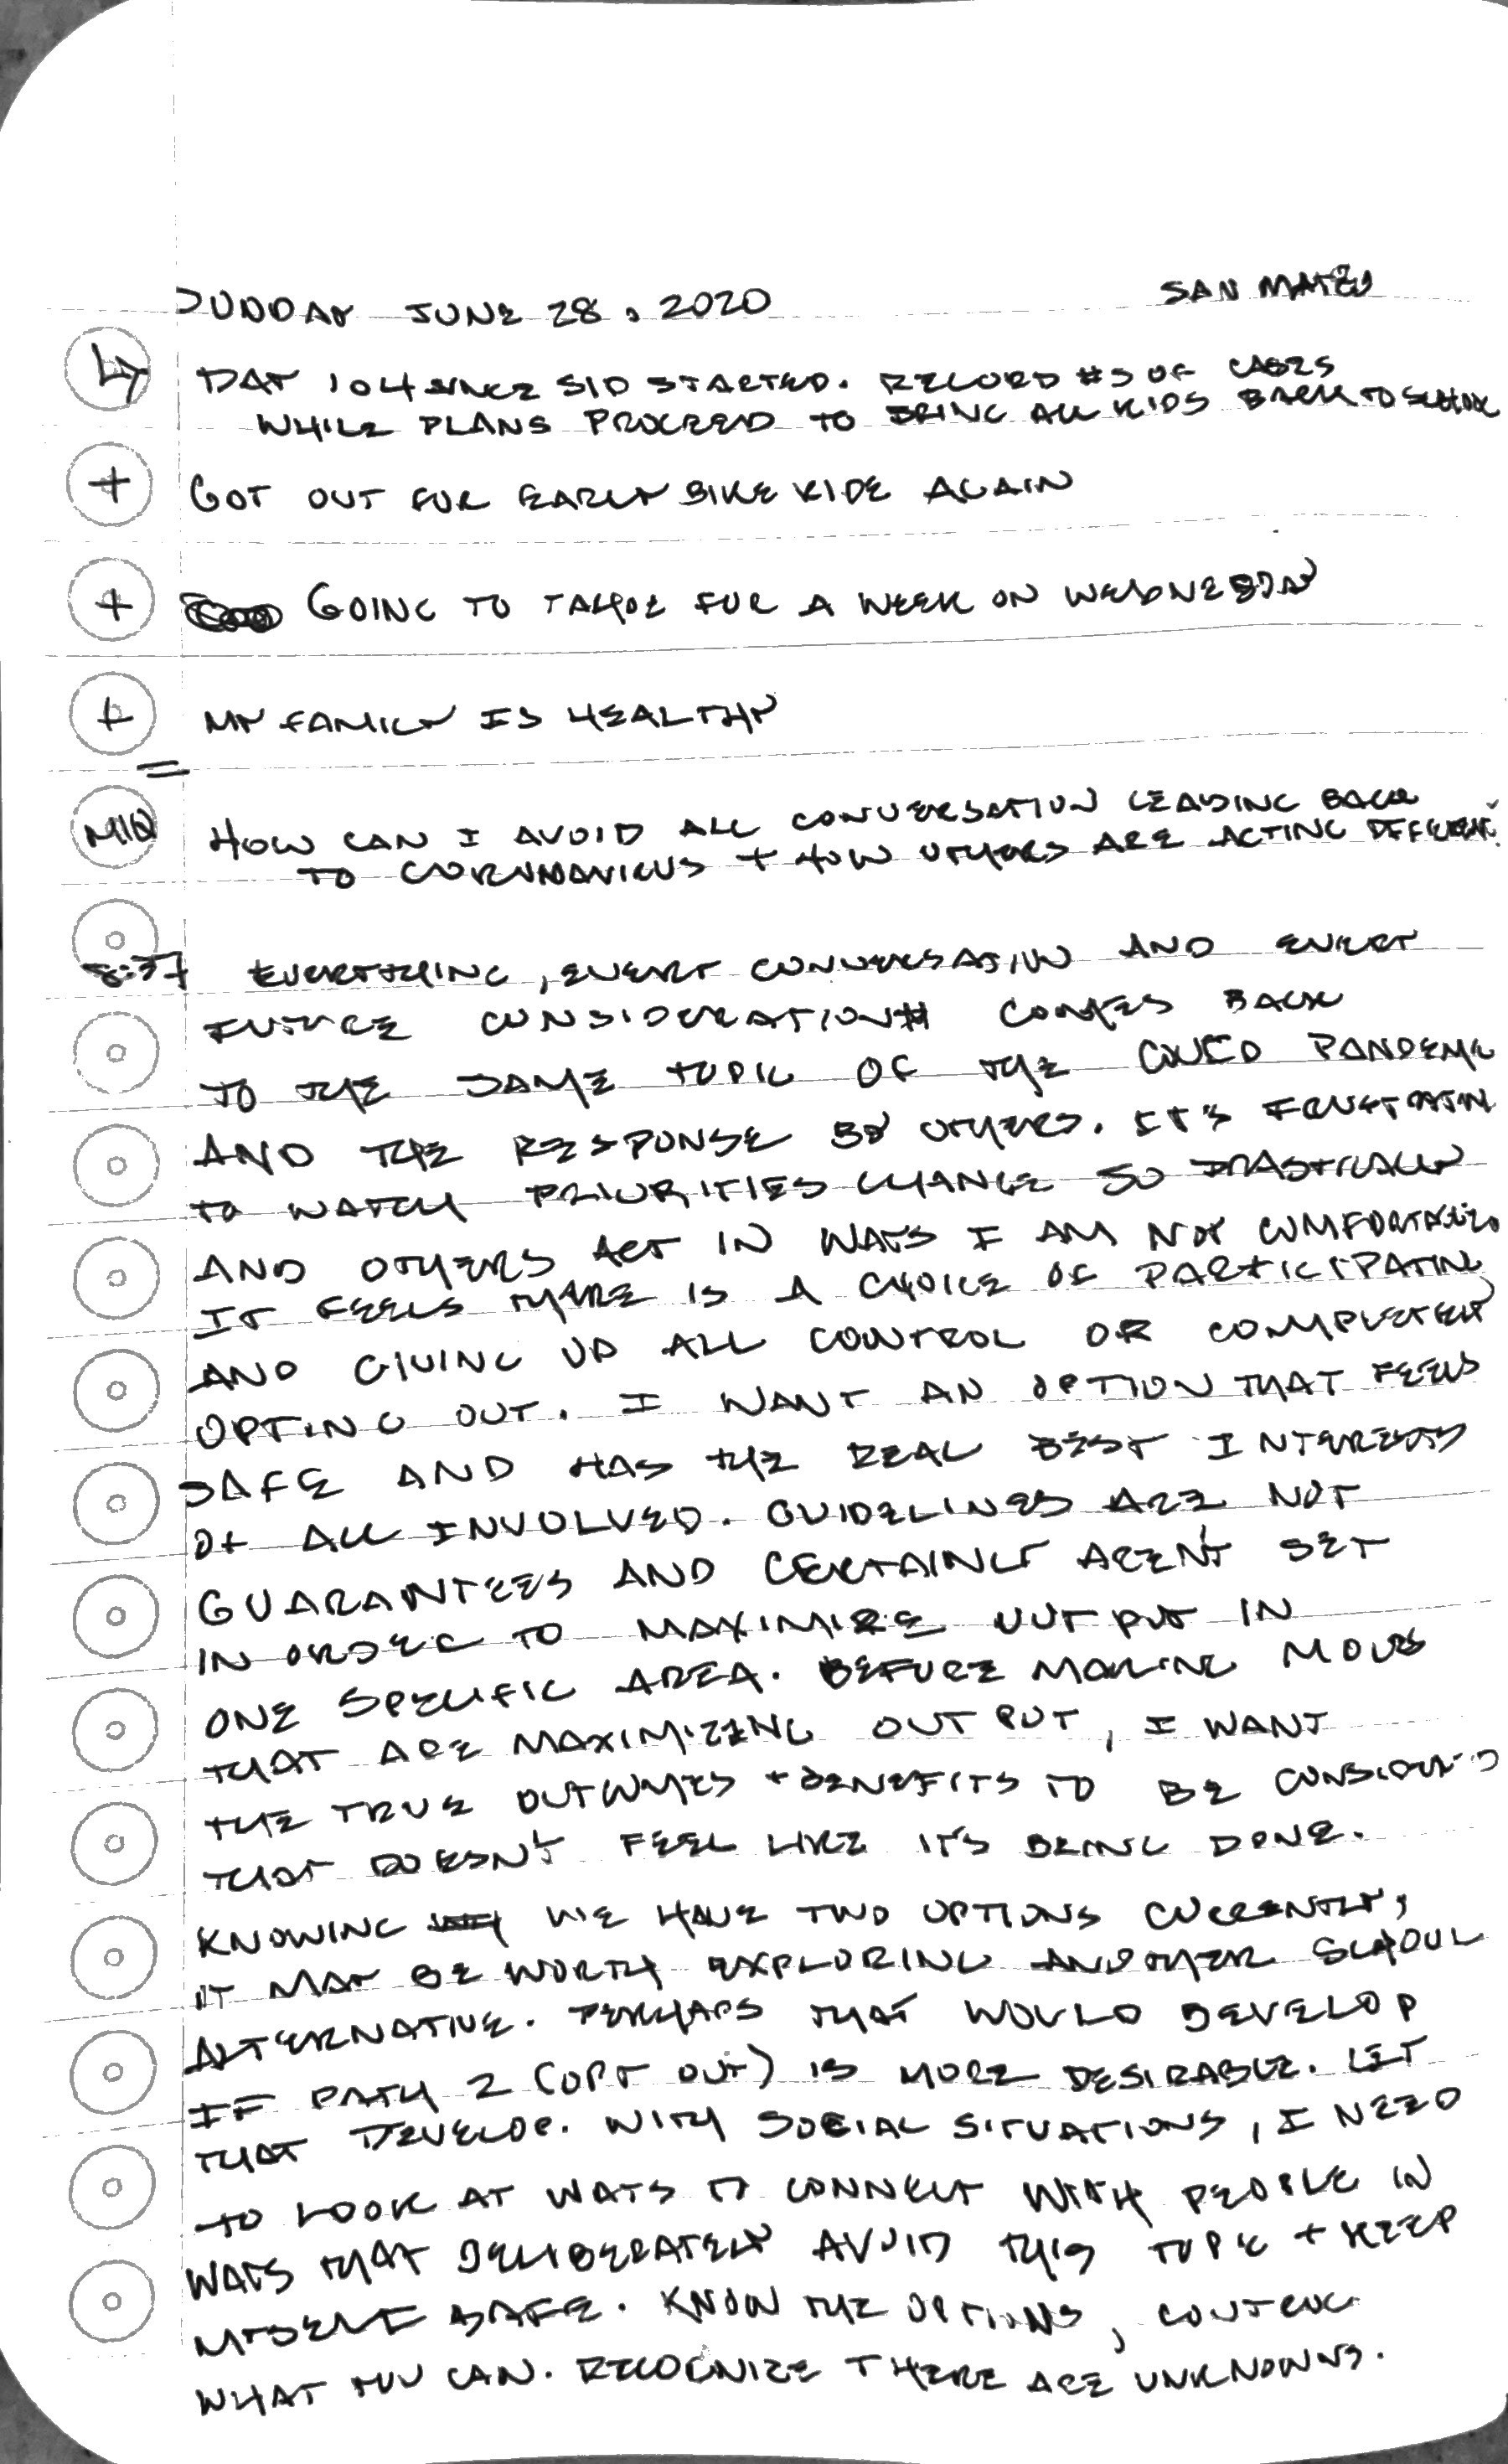 SUNDAY JUNE 28, 2020 SAN MATEO
DAY 104 SINCE SIP STARTED. RECORD #S OF CASES
WHILE PLANS PROCEED TO BRING ALL KIDS BACK TO SCHOOL
+ GOT OUT FOR EARLY BIKE RIDE AGAIN
+ GOING TO TAHOE FOR A WEEK ON WEDNESDAY
+ MY FAMILY IS HEALTHY
=
MIQ HOW CAN I AVOID ALL CONVERSATION LEADING BACK
TO CORONAVIRUS + HOW OTHERS ARE ACTING DIFFERENT.
8:37 EVERYTHING, EVERY CONVERSATION AND EVERY
FUTURE CONSIDERATION COMES BACK
TO THE SAME TOPIC OF THE COVID PANDEMIC
AND THE RESPONSE BY OTHERS. IT'S FRUSTRATING
TO WATCH PRIORITIES CHANGE SO DRASTICALLY
AND OTHERS ACT IN WAYS I AM NOT COMFORTABLE.
IT FEELS THERE IS A CHOICE OF PARTICIPATING
AND GIVING UP ALL CONTROL OR COMPLETELY
OPTING OUT. I WANT AN OPTION THAT FEELS
SAFE AND HAS THE REAL BEST INTERESTS
OF ALL INVOLVED. GUIDELINES ARE NOT
GUARANTEES AND CERTAINLY AREN'T SET
IN ORDER TO MAXIMIZE OUTPUT IN
ONE SPECIFIC AREA. BEFORE MAKING MOVES
THAT ARE MAXIMIZING OUTPUT, I WANT
THE TRUE OUTCOMES + BENEFITS TO BE CONSIDERED
THAT DOESN'T FEEL LIKE IT'S BEING DONE.
KNOWING WE HAVE TWO OPTIONS CURRENTLY,
IT MAY BE WORTH EXPLORING ANOTHER SCHOOL
ALTERNATIVE. PERHAPS THAT WOULD DEVELOP
IF PATH 2 (OPT OUT) IS MORE DESIRABLE. LET
THAT DEVELOP. WITH SOCIAL SITUATIONS, I NEED
TO LOOK AT WAYS TO CONNECT WITH PEOPLE IN
WAYS THAT DELIBERATELY AVOID THIS TOPIC + KEEP
MYSELF SAFE. KNOW THE OPTIONS, CONTROL
WHAT YOU CAN. RECOGNIZE THERE ARE UNKNOWNS.